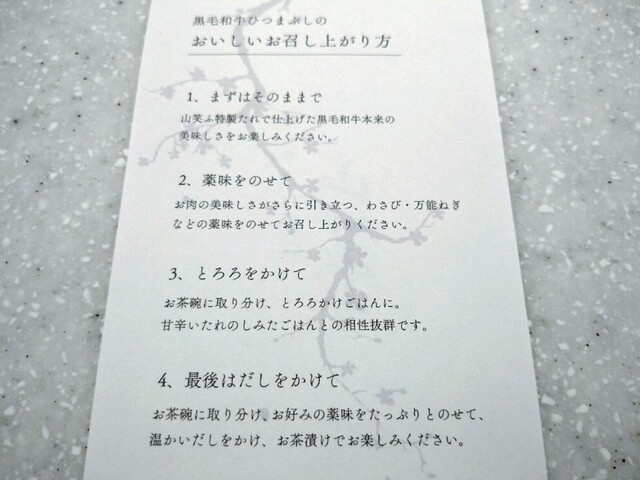 黒毛和牛ひつまぶしの
おいしいお召し上がり方
1、まずはそのままで
山笑ふ特製たれで仕上げた黒毛和牛本来の
美味しさをお楽しみください。
2、薬味をのせて
お肉の美味しさがさらに引き立つ、わさび・万能ねぎ
などの薬味をのせてお召し上がりください。
3、とろろをかけて
お茶碗に取り分け、とろろかけごはんに。
甘辛いたれのしみたごはんとの相性抜群です。
4、最後はだしをかけて
お茶碗に取り分け、お好みの薬味をたっぷりとのせて、
温かいだしをかけ、お茶漬けでお楽しみください。